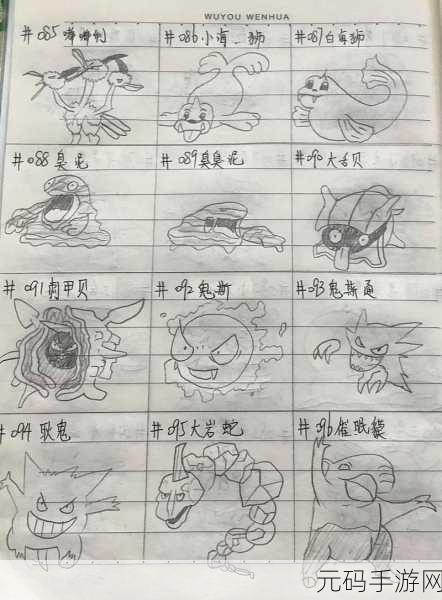 WUYOU WENHUA
#085 嘟嘟利
#086小海狮
#087白海狮
#088 臭泥
#089臭臭泥
#090 大舌贝
#091刺甲贝
#092鬼斯
#093鬼斯通
#094 耿鬼
#095大岩蛇
#096催眠貘
元码手游网